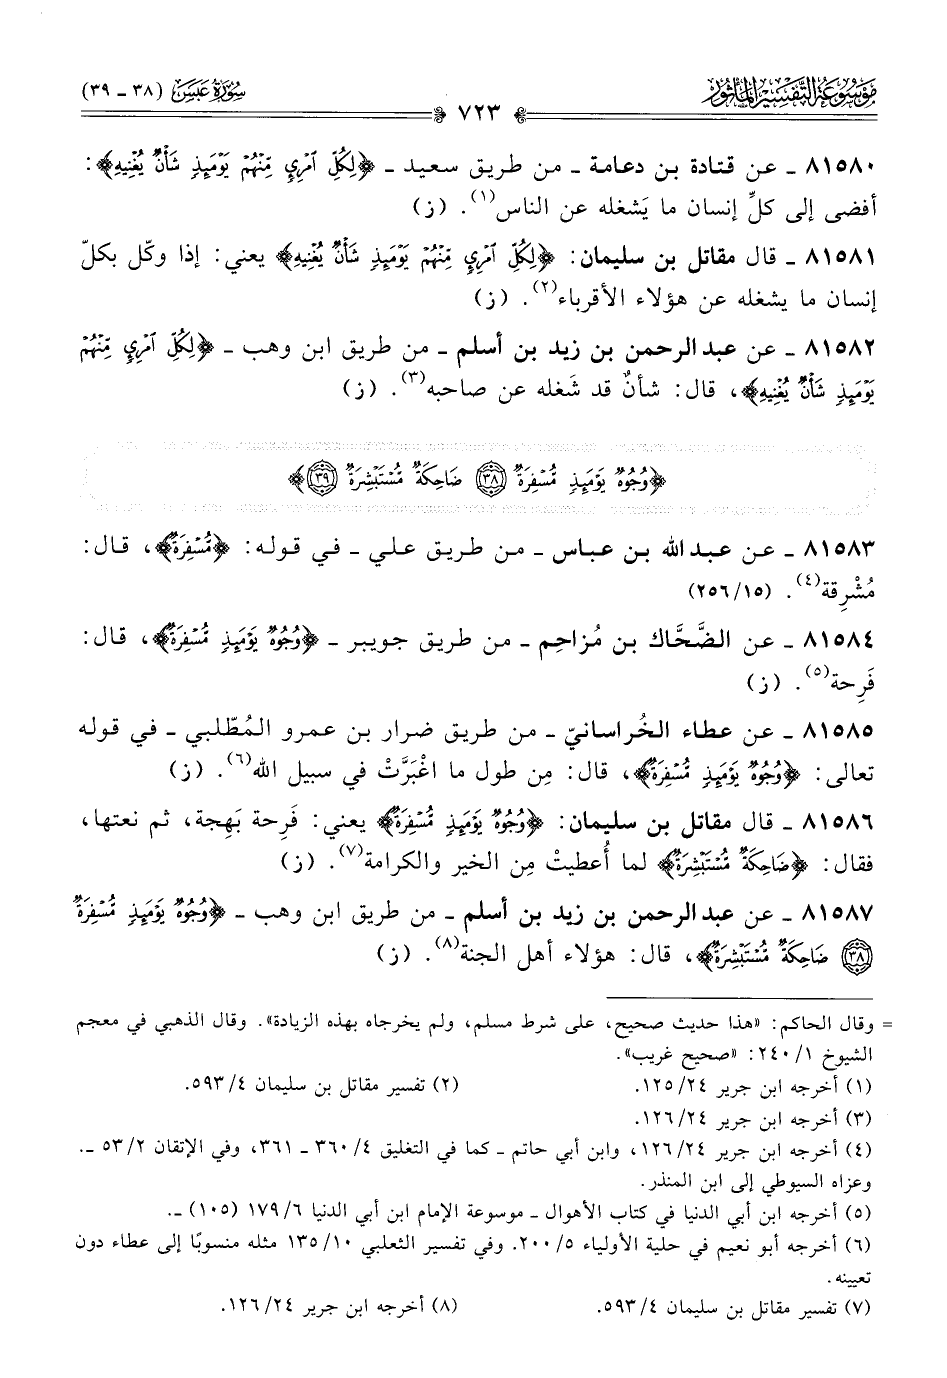 مَوْسُوعَةُ التَّفْسِيرِ المَأْثُور
سُورَةُ عَبَسَ (٣٨ - ٣٩)
٧٢٣
٨١٥٨٠ ـ عن قتادة بن دعامة ـ من طريق سعيد ـ ﴿لِكُلِّ ٱمْرِيٍٕ مِّنْهُمْ يَوْمَئِذٍ شَأْنٌ يُغْنِيهِ﴾:
أفضى إلى كلِّ إنسان ما يَشغله عن الناس(١). (ز)
٨١٥٨١ ـ قال مقاتل بن سليمان: ﴿لِكُلِّ ٱمْرِيٍٕ مِّنْهُمْ يَوْمَئِذٍ شَأْنٌ يُغْنِيهِ﴾ يعني: إذا وكّل بكلّ
إنسان ما يشغله عن هؤلاء الأقرباء(٢). (ز)
٨١٥٨٢ ـ عن عبد الرحمن بن زيد بن أسلم ـ من طريق ابن وهب ـ ﴿لِكُلِّ ٱمْرِيٍٕ مِّنْهُمْ
يَوْمَئِذٍ شَأْنٌ يُغْنِيهِ﴾، قال: شأنٌ قد شَغله عن صاحبه(٣). (ز)
﴿وُجُوهٌ يَوْمَئِذٍ مُّسْفِرَةٌ ٣٨ ضَاحِكَةٌ مُّسْتَبْشِرَةٌ ٣٩﴾
٨١٥٨٣ ـ عن عبد الله بن عباس ـ من طريق علي ـ في قوله: ﴿مُّسْفِرَةٌ﴾، قال:
مُشْرِقة(٤). (١٥/٢٥٦)
٨١٥٨٤ ـ عن الضَّحَّاك بن مُزاحِم ـ من طريق جويبر ـ ﴿وُجُوهٌ يَوْمَئِذٍ مُّسْفِرَةٌ﴾، قال:
فَرِحة(٥). (ز)
٨١٥٨٥ ـ عن عطاء الخُراسانيّ ـ من طريق ضرار بن عمرو المُطّلبي ـ في قوله
تعالى: ﴿وُجُوهٌ يَوْمَئِذٍ مُّسْفِرَةٌ﴾، قال: مِن طول ما اغْبَرَّتْ في سبيل الله(٦). (ز)
٨١٥٨٦ ـ قال مقاتل بن سليمان: ﴿وُجُوهٌ يَوْمَئِذٍ مُّسْفِرَةٌ﴾ يعني: فَرِحة بَهِجة، ثم نعتها،
فقال: ﴿ضَاحِكَةٌ مُّسْتَبْشِرَةٌ﴾ لما أُعطيتْ مِن الخير والكرامة(٧). (ز)
٨١٥٨٧ ـ عن عبد الرحمن بن زيد بن أسلم ـ من طريق ابن وهب ـ ﴿وُجُوهٌ يَوْمَئِذٍ مُّسْفِرَةٌ
٣٨ ضَاحِكَةٌ مُّسْتَبْشِرَةٌ﴾، قال: هؤلاء أهل الجنة(٨). (ز)
= وقال الحاكم: «هذا حديث صحيح، على شرط مسلم، ولم يخرجاه بهذه الزيادة». وقال الذهبي في معجم
الشيوخ ١/٢٤٠: «صحيح غريب».
(١) أخرجه ابن جرير ٢٤/١٢٥. (٢) تفسير مقاتل بن سليمان ٤/٥٩٣.
(٣) أخرجه ابن جرير ٢٤/١٢٦.
(٤) أخرجه ابن جرير ٢٤/١٢٦، وابن أبي حاتم ـ كما في التغليق ٤/٣٦٠ ـ ٣٦١، وفي الإتقان ٢/٥٣ ـ.
وعزاه السيوطي إلى ابن المنذر.
(٥) أخرجه ابن أبي الدنيا في كتاب الأهوال ـ موسوعة الإمام ابن أبي الدنيا ٦/١٧٩ (١٠٥) ـ.
(٦) أخرجه أبو نعيم في حلية الأولياء ٥/٢٠٠. وفي تفسير الثعلبي ١٠/١٣٥ مثله منسوبًا إلى عطاء دون
تعيينه.
(٧) تفسير مقاتل بن سليمان ٤/٥٩٣. (٨) أخرجه ابن جرير ٢٤/١٢٦.